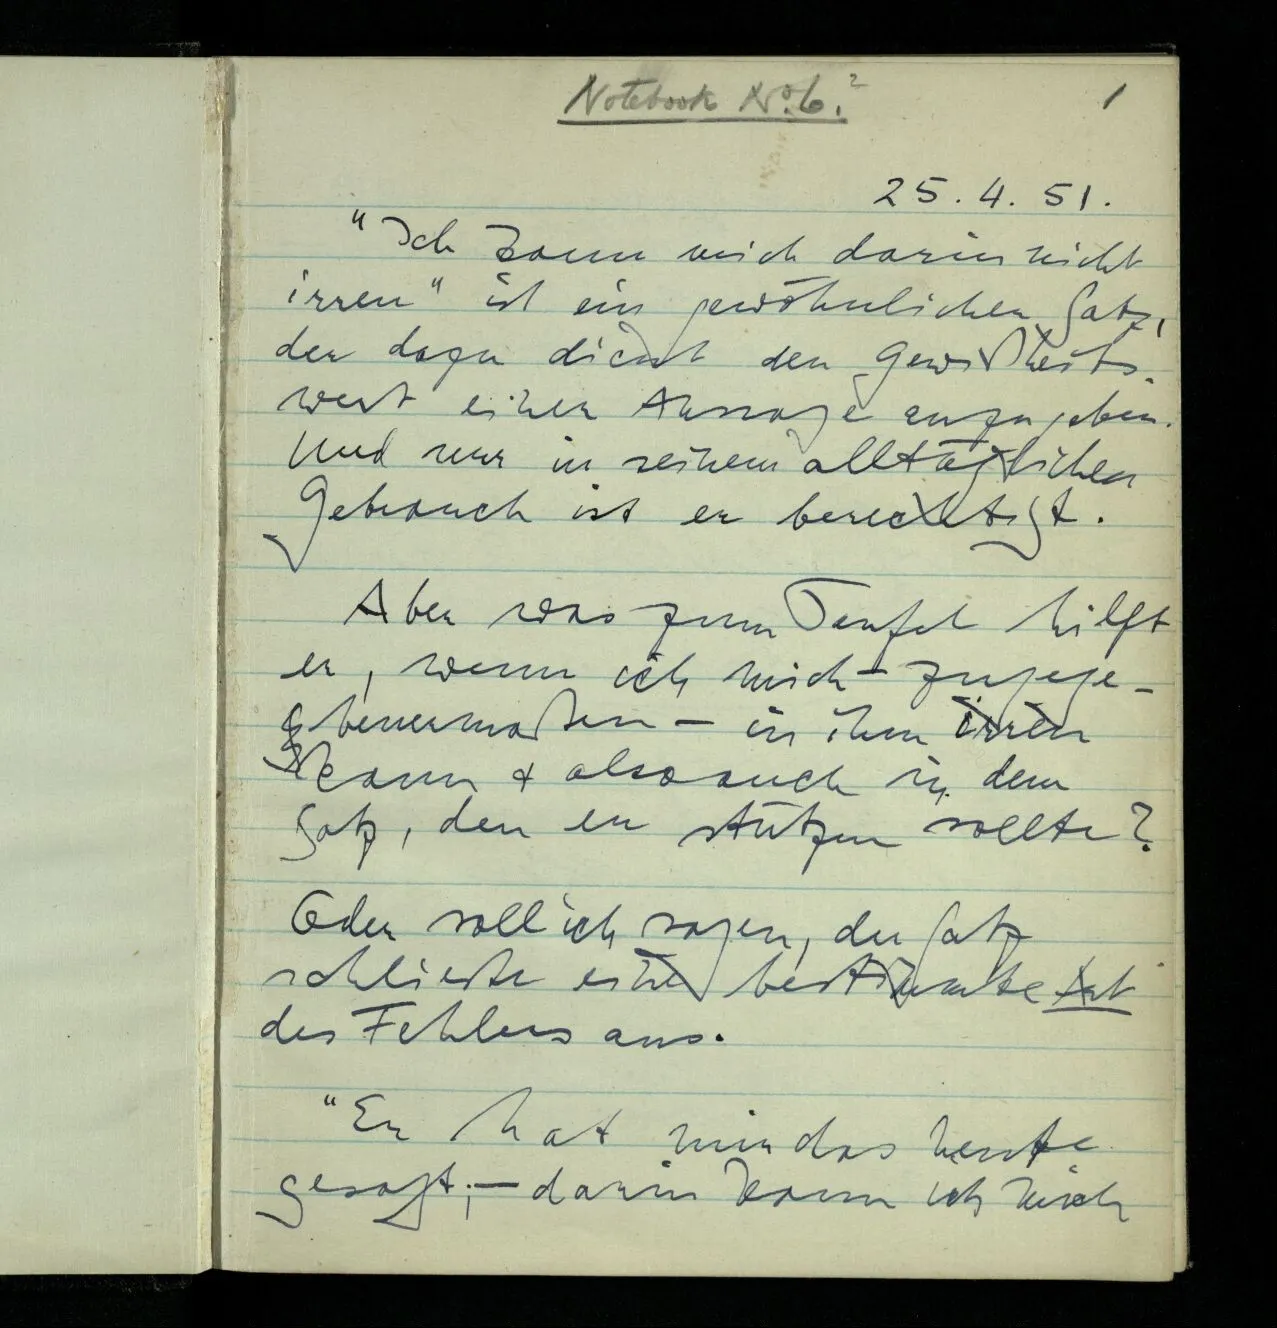 Notebook No. 6.?
1
25.4.51.
"Ich kann mich darin nicht
irren" ist ein gewöhnlicher Satz,
der dazu dient den Gewißheits-
wert einer Aussage anzugeben.
Und nur in seinem alltäglichen
Gebrauch ist er berechtigt.
Aber was zum Teufel hilft
er, wenn ich mich – zugege-
benermaßen – in ihm irren
kann + also auch in dem
Satz, den er stützen sollte?
Oder soll ich sagen, der Satz
schließe eine bestimmte Art
des Fehlers aus.
"Er hat mir das heute
gesagt; – darin kann ich mich